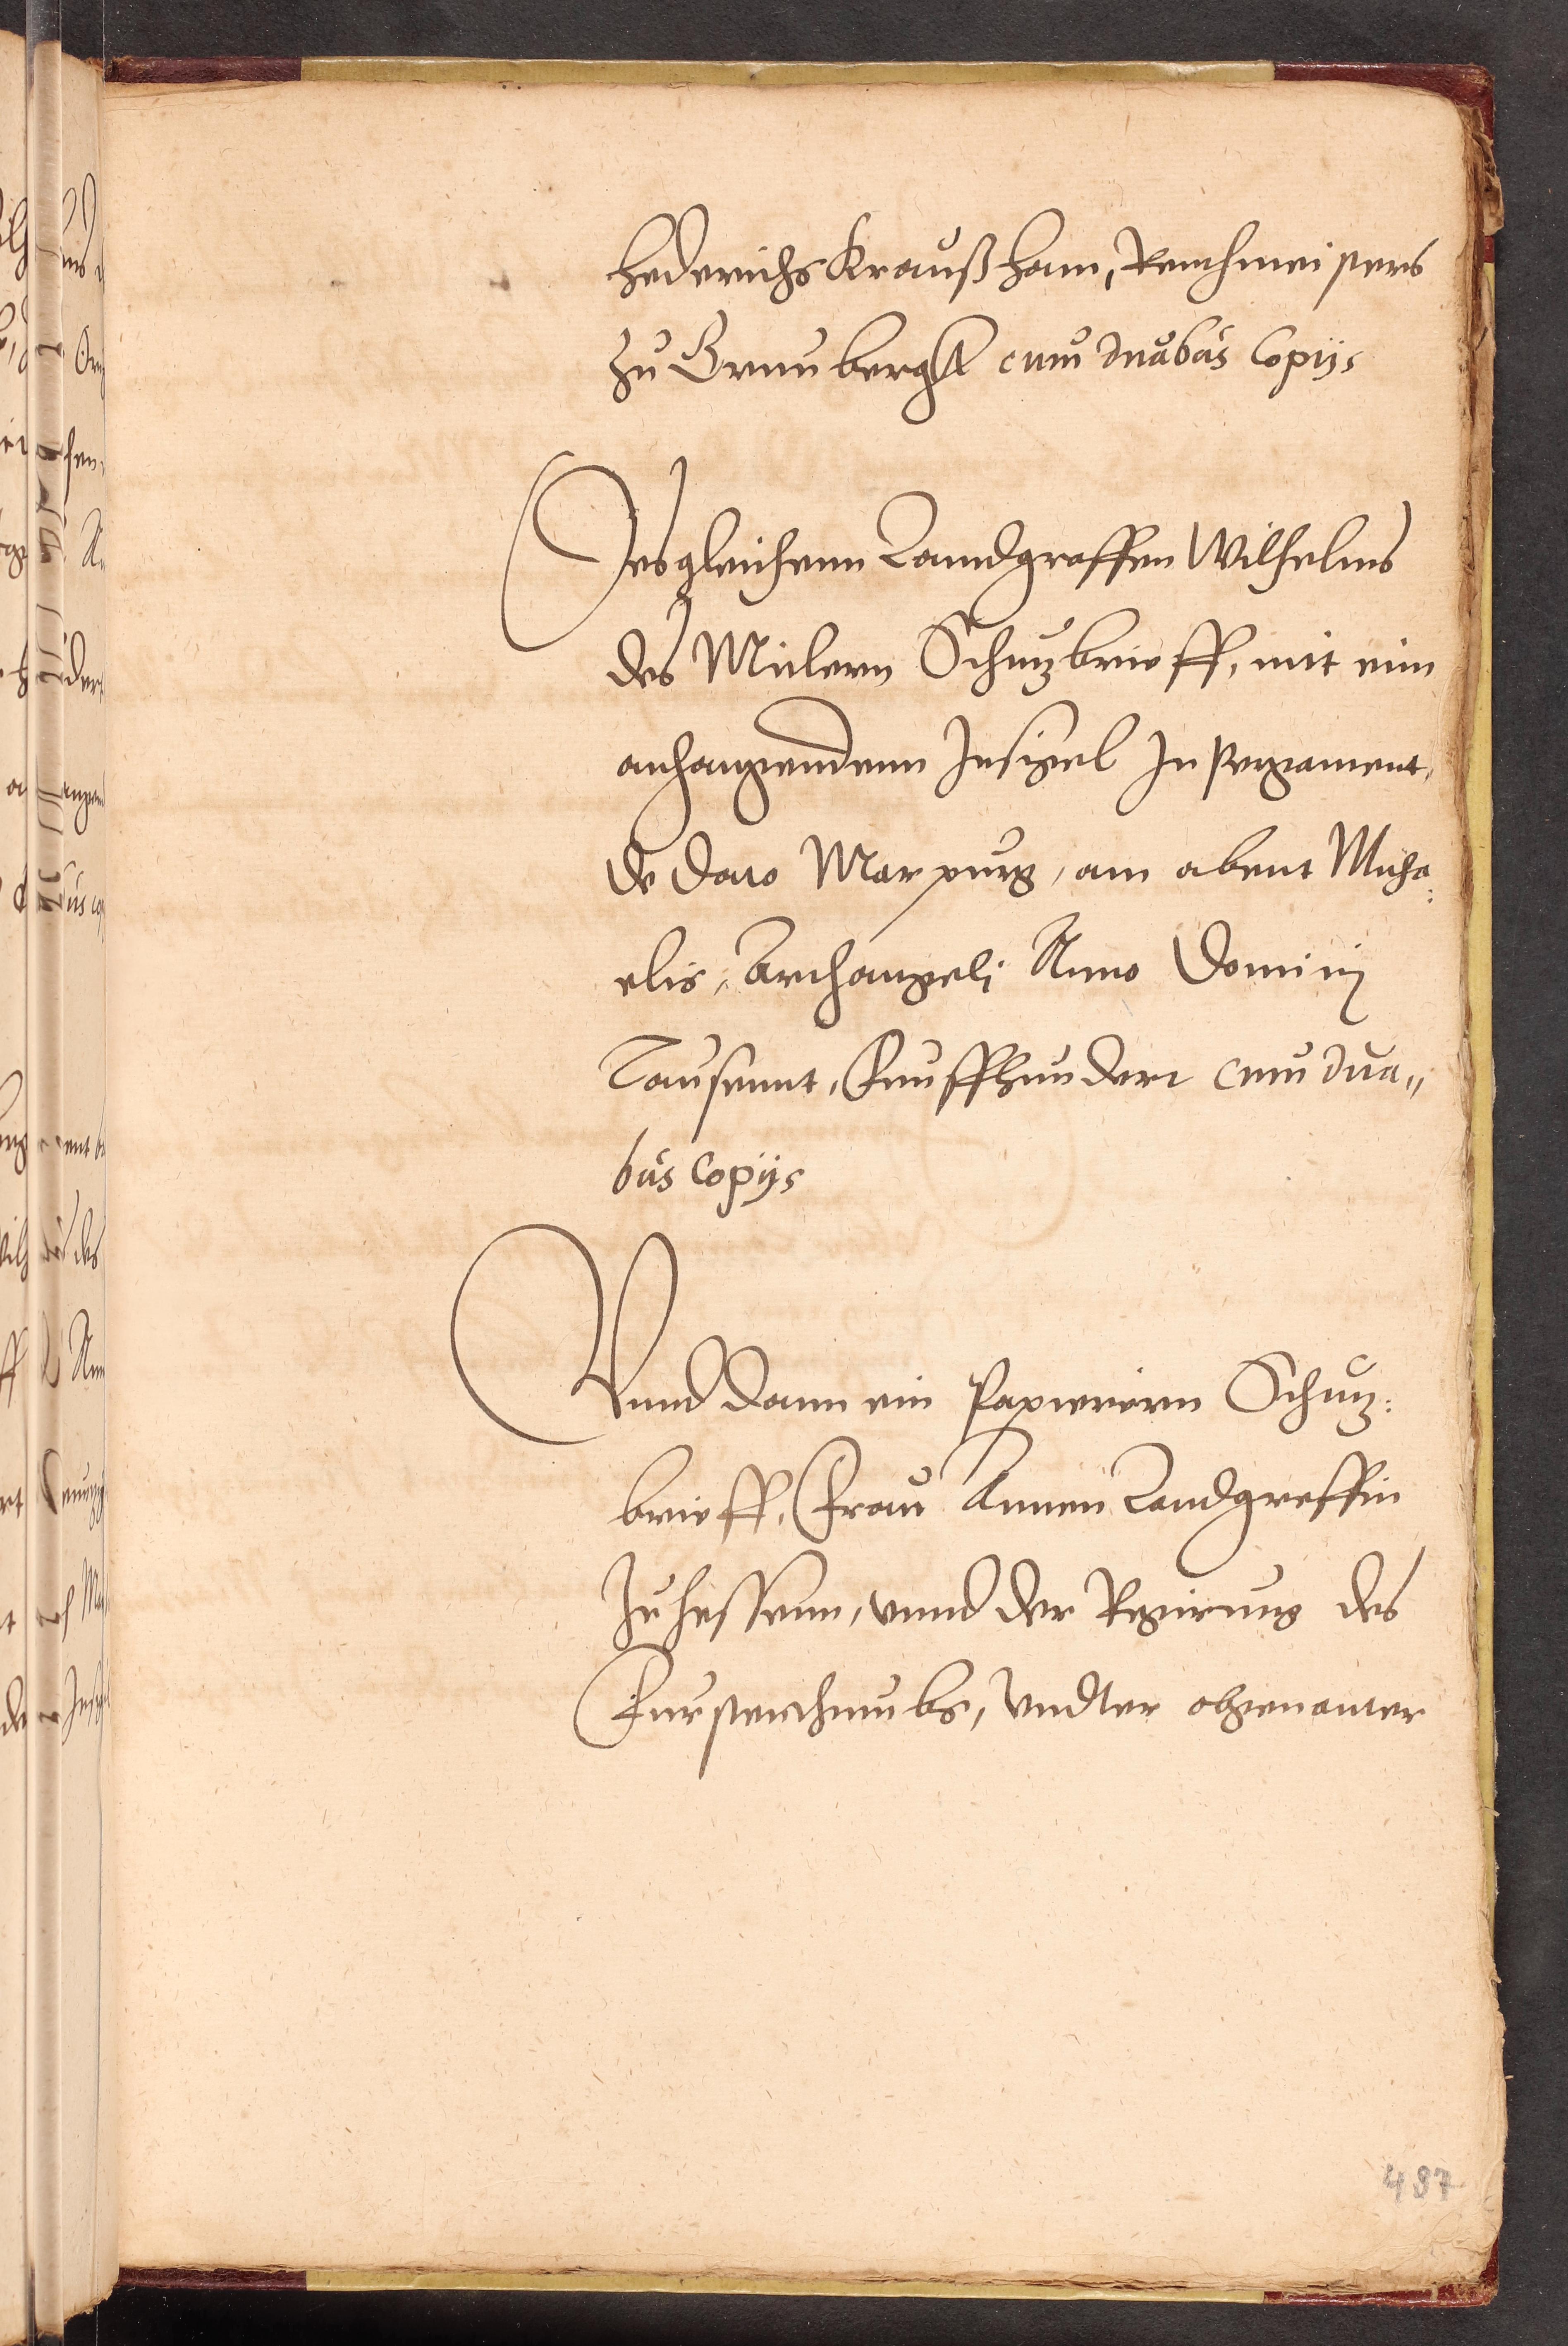 hederichs Kraußham, Rentmeisters
zu Grunbergk cum duabus Copijs
Desgleichenn Lanndgraffen Wilhelms
des Mitlern Schutzbrieff, mit eim
anhangendenn Insigel In Pergament,
de dato Marpurg, am abent Micha:
elis, Archangeli Anno Dominj
Tausennt, Funffhundert cum dua„
bus Copijs
Vnnd dann ein Papierern Schutz:
brieff, Frau Annen Landgreffin
zu hessenn, vnnd der Regirung des
Furstenthumbs, vndter obgenanter
487